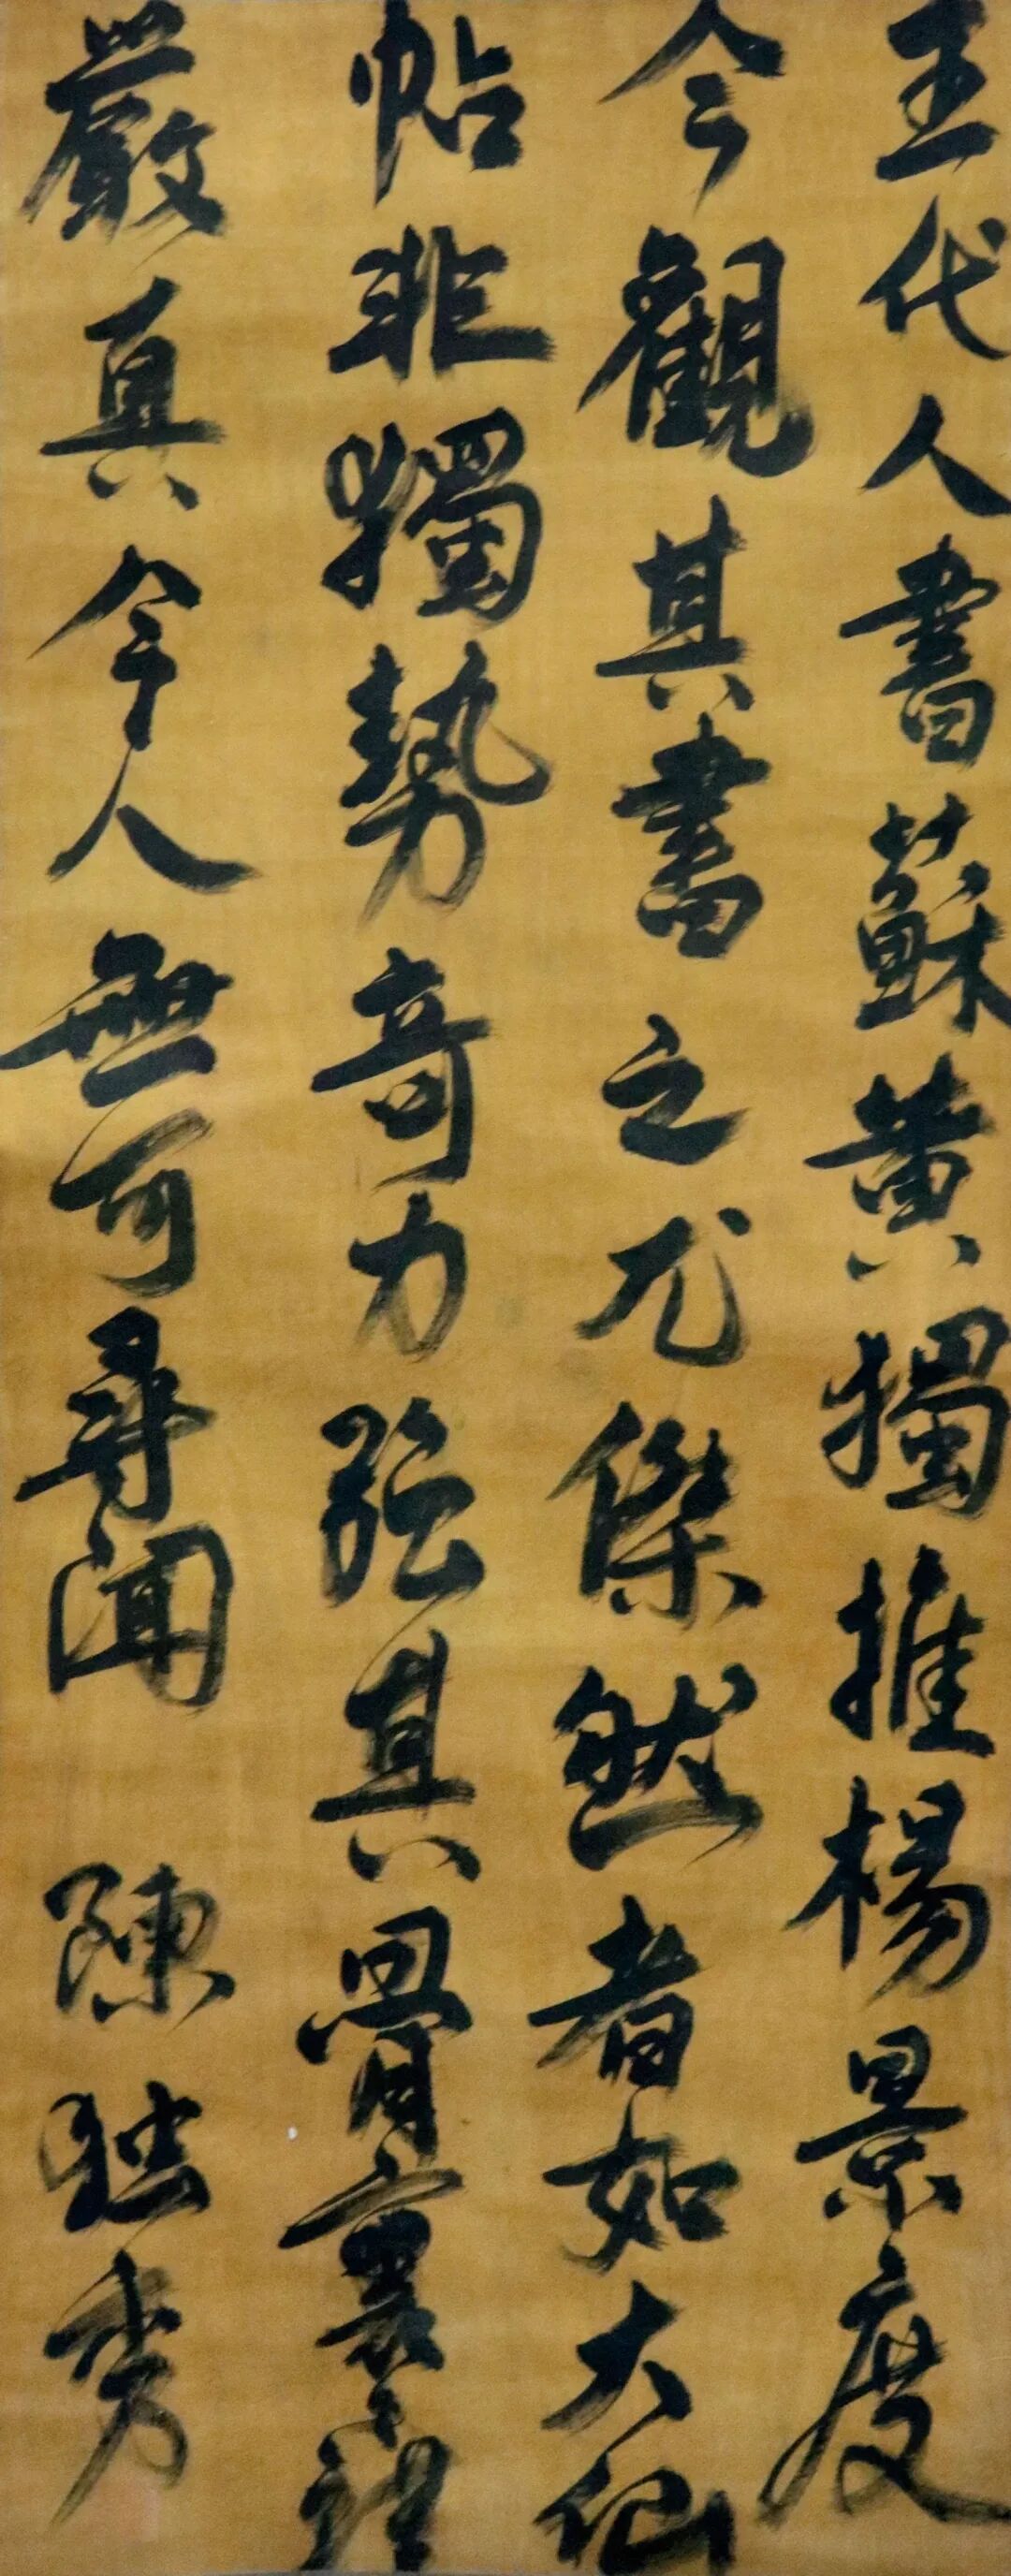 五代人書蘇黃獨推楊景度
今觀其書之尤傑然者如大仙
帖非獨勢奇力強其骨裏謹
嚴真令人無可尋間
陳独秀